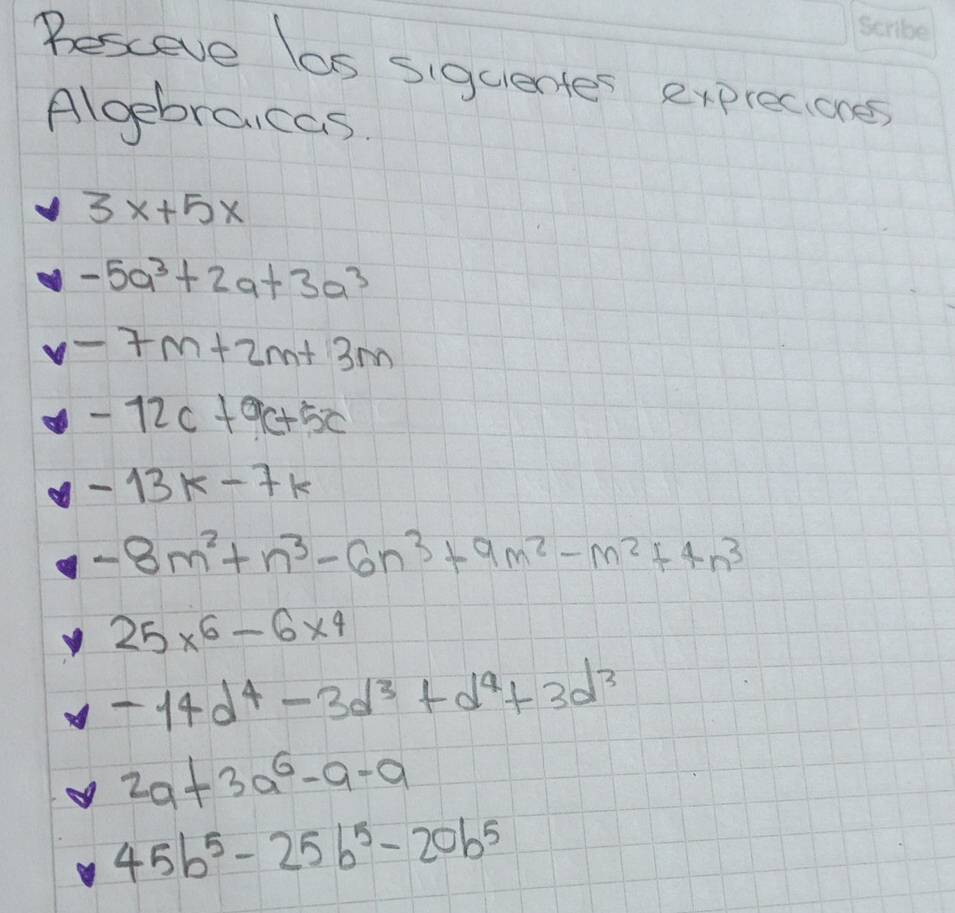 Scribe
Resceve las siguientes expreciones
Algebraicas.
3x+5x
-5a³+2a+3a³
-7m+2m+3m
-12c+9c+5c
-13k-7k
-8m²+n³-6n³+9m²-m²+4n³
25x⁶-6x⁴
-14d⁴-3d³+d⁴+3d³
2a+3a⁶-a-a
45b⁵-25b⁵-20b⁵